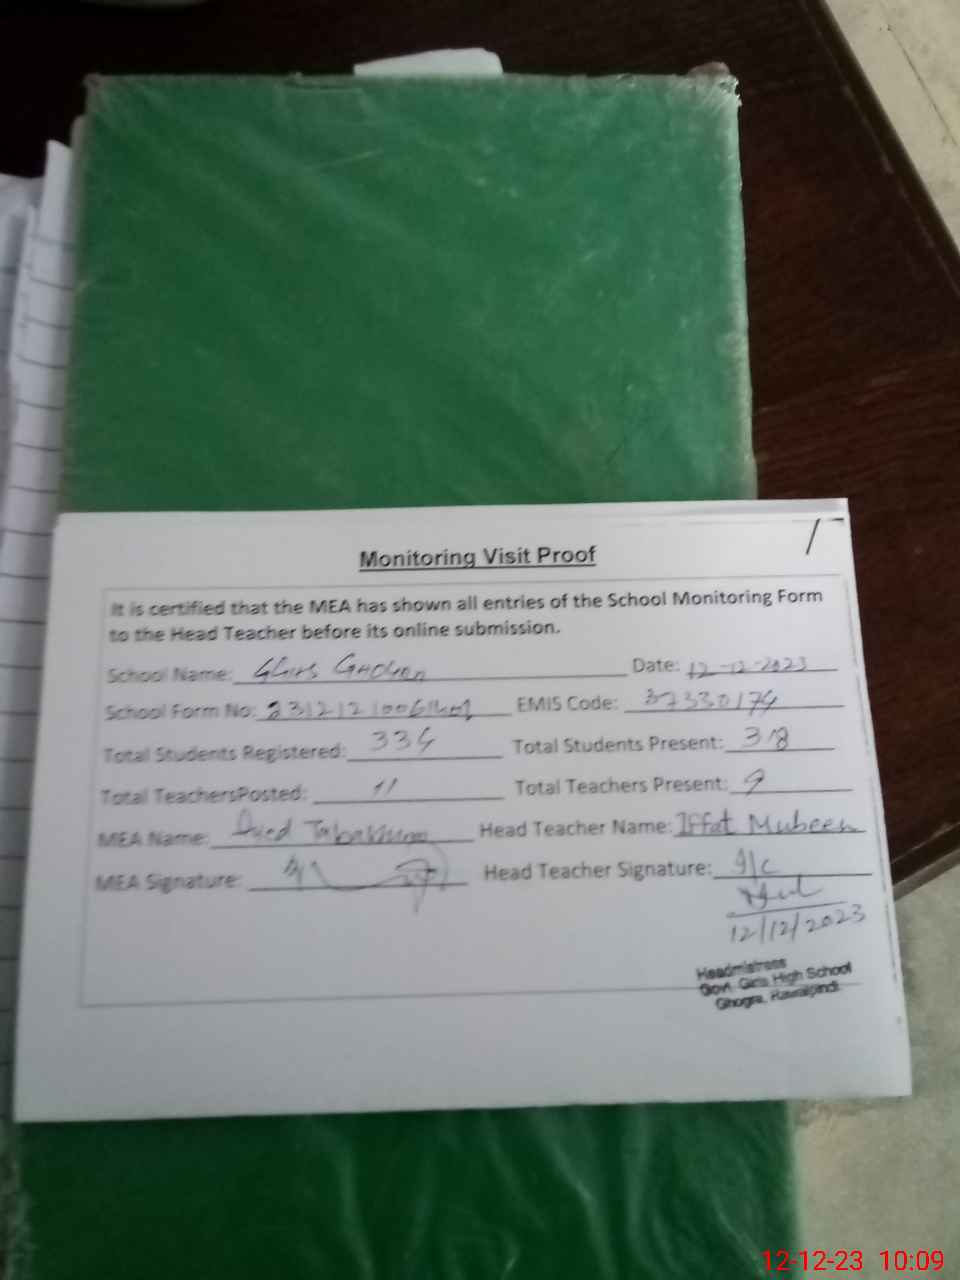 Monitoring Visit Proof
It is certified that the MEA has shown all entries of the School Monitoring Form
to the Head Teacher before its online submission.
School Name: GGHS Date: 12-12-2023
School Form No: EMIS Code: 37330174
Total Students Registered: 334 Total Students Present: 318
Total TeachersPosted: 11 Total Teachers Present: 9
MEA Name: Tabassum Head Teacher Name: Iffat Mubeen
MEA Signature: Head Teacher Signature: I/C
12/12/2023
Headmistress
Govt. Girls High School
Ghogra, Rawalpindi
12-12-23 10:09